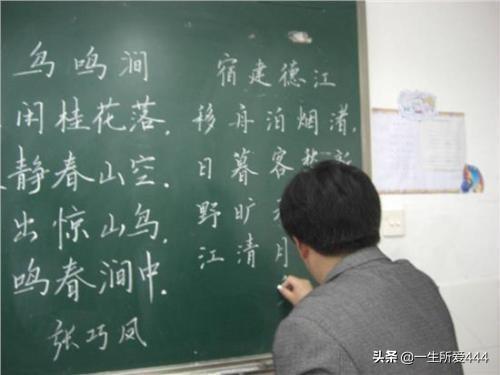 鸟鸣涧
闲桂花落.
静春山空.
出惊山鸟.
鸣春涧中.
张巧凤
宿建德江
移舟泊烟渚,
日暮客愁新
野旷天
江清月
头条 @一生所爱444